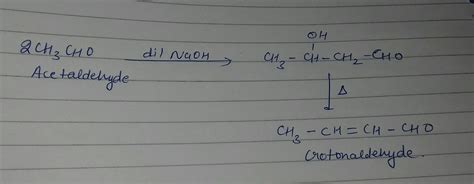 OH
2CH₃CHO dil NaOH → CH₃ – CH – CH₂ – CHO
Acetaldehyde
Δ
CH₃ – CH = CH – CHO
Crotonaldehyde